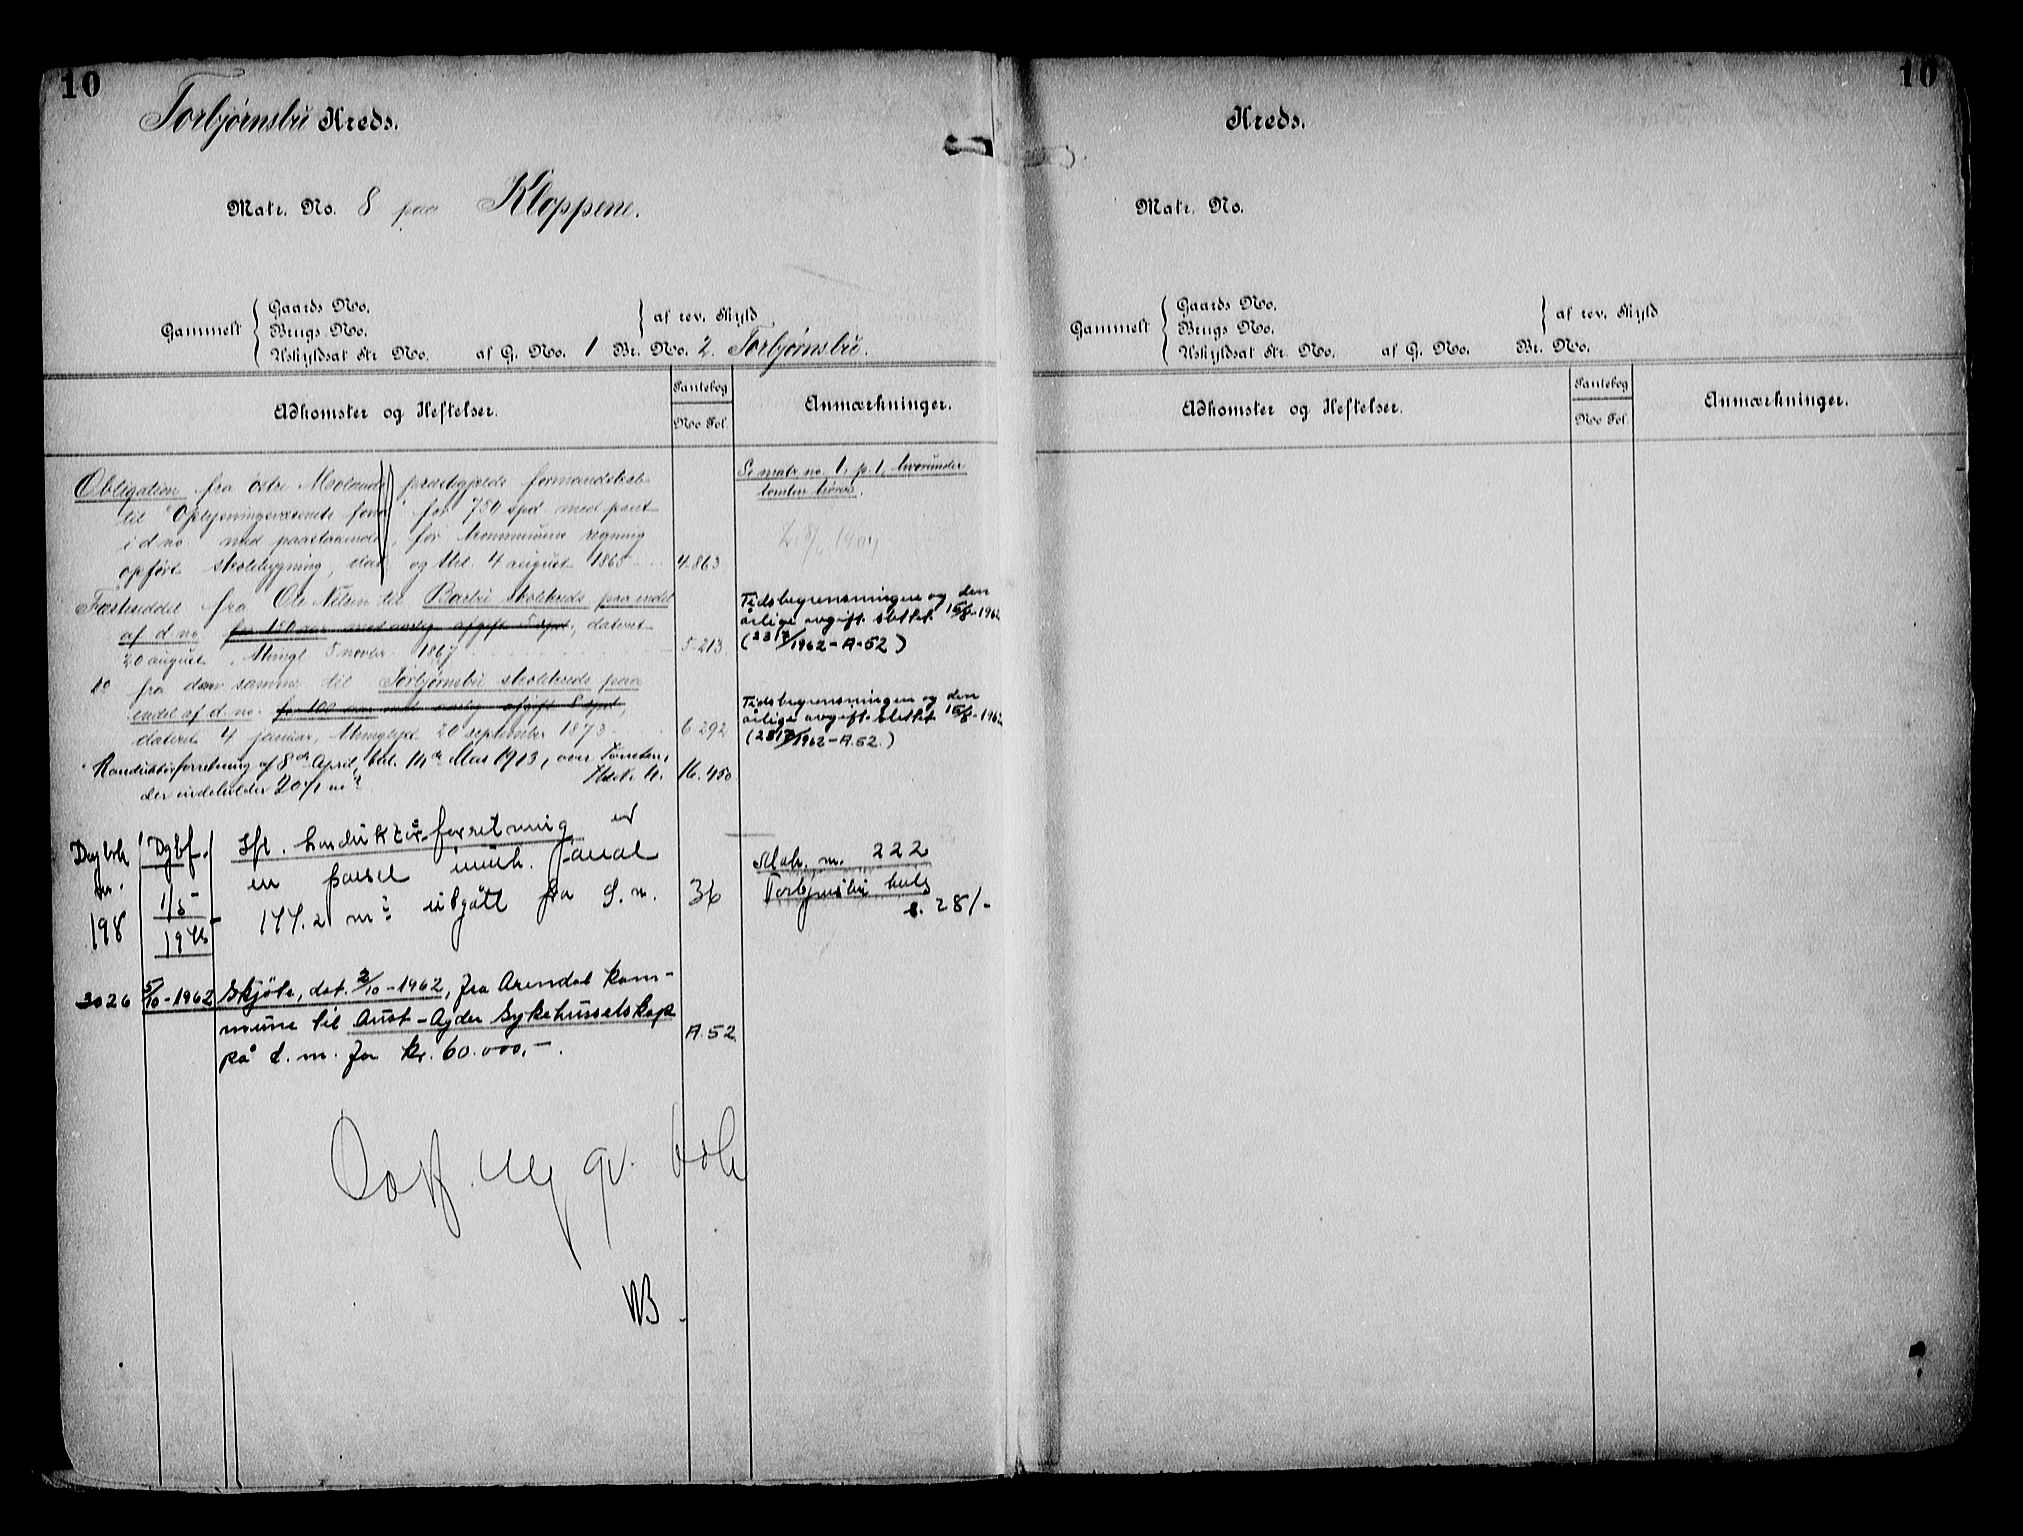 10
Torbjørnsbu Kreds.
Matr. No. 8 paa Kloppene.
Gammelt
Gaards No.
Brugs No.
Uskyldsat Str. No.
af rev. Skyld
af G. No. 1 Br. No. 2. Torbjørnsbu.
Adkomster og Heftelser.
Pantebog
No Fol.
Anmærkninger.
Obligation fra østre Molands præstegjelds formandskab
til Oplysningsvæsenets fond for 750 spd med pant
i d no med paastaaende, for kommunens regning
opført skolebygning, dat. og thl. 4 august 1865 4-863
Se matr no 1, p. 1, hvorunder
tomten hører.
Fæsteseddel fra Ole Nilsen til Barbu skolekreds paa endel
af d no for 150 aar med aarlig afgift 5 spd, dateret
20 august, thingl. 5 novbr. 1867 5-213
Tidsbegrensningen og den
årlige avgift slettet 15/8-1962
(2317/1962-A-52)
do fra den samme til Torbjørnsbu skolekreds paa
endel af d. no. for 100 aar med aarlig afgift 8 spd,
dateret 4 januar, thinglyst 20 september 1873 6-292
Tidsbegrensningen og den
årlige avgift slettet 15/8-1962
(2317/1962-A.52.)
Konduktørforretning af 8de April, thl. 14de Mai 1913, over Tomten,
der indeholder 2071 m2 16.450
Dagbok
nr.
198
Dgbf.
1/5
1946
Ifl. konduktør-forretning er
en parsel areal
177.2 m2 utgått fra d. n. 36
Matr. nr. 222
Torbjørnsbu
s. 28/-
3026 5/10-1962 Skjøte, dat. 2/10-1962, fra Arendal kom-
mune til Aust-Agder Sykehusselskap
på d. m. for kr. 60.000,-. A.52.
Oof. ny gr. bok
WB.
10
Kreds.
Matr. No.
Gammelt
Gaards No.
Brugs No.
Uskyldsat Str. No.
af rev. Skyld
af G. No. Br. No.
Adkomster og Heftelser.
Pantebog
No Fol.
Anmærkninger.